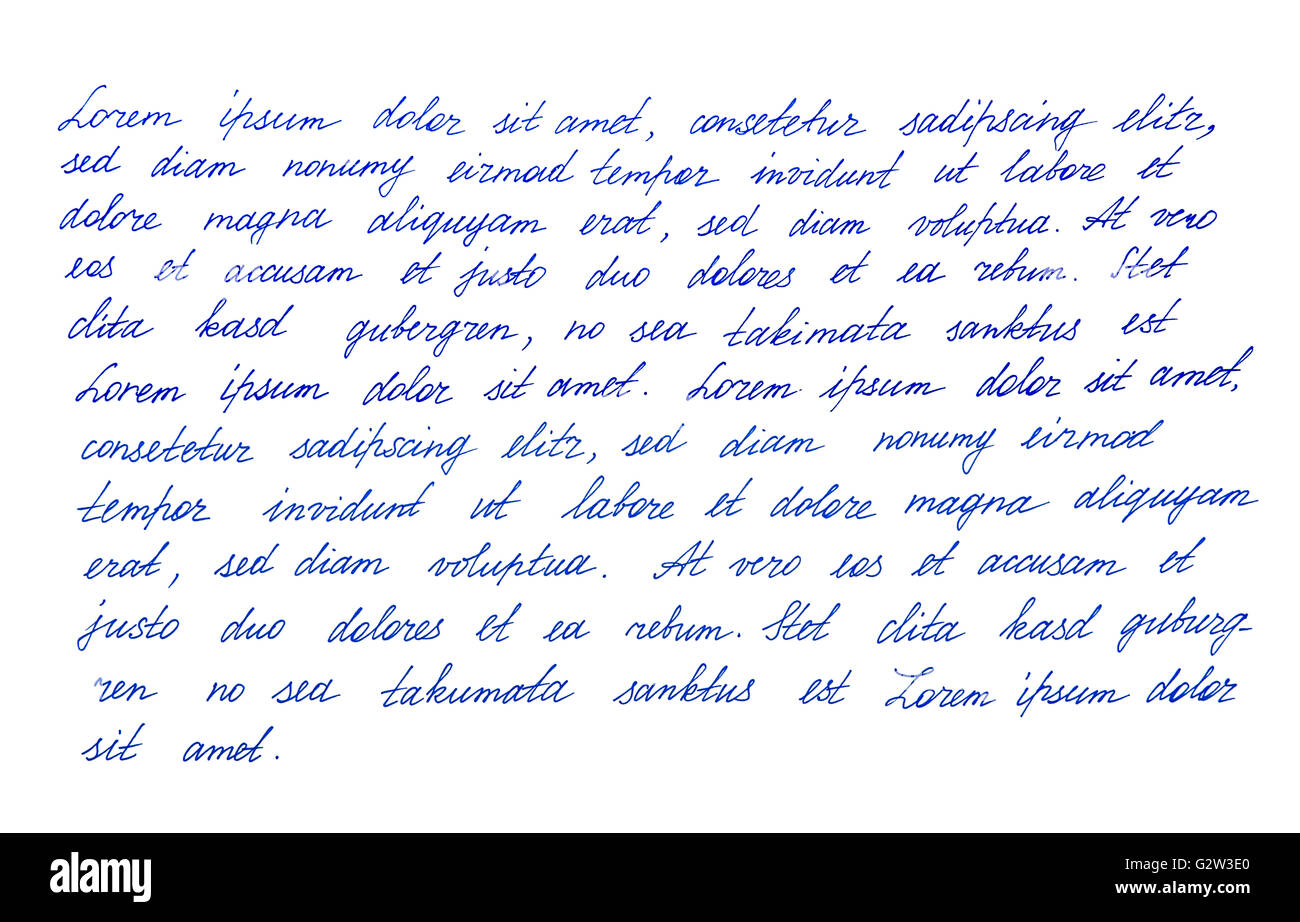 Lorem ipsum dolor sit amet, consetetur sadipscing elitr,
sed diam nonumy eirmod tempor invidunt ut labore et
dolore magna aliquyam erat, sed diam voluptua. At vero
eos et accusam et justo duo dolores et ea rebum. Stet
clita kasd gubergren, no sea takimata sanktus est
Lorem ipsum dolor sit amet. Lorem ipsum dolor sit amet,
consetetur sadipscing elitr, sed diam nonumy eirmod
tempor invidunt ut labore et dolore magna aliquyam
erat, sed diam voluptua. At vero eos et accusam et
justo duo dolores et ea rebum. Stet clita kasd guburg-
ren no sea takumata sanktus est Lorem ipsum dolor
sit amet.
alamy stock photo
G2W3E0
www.alamy.com